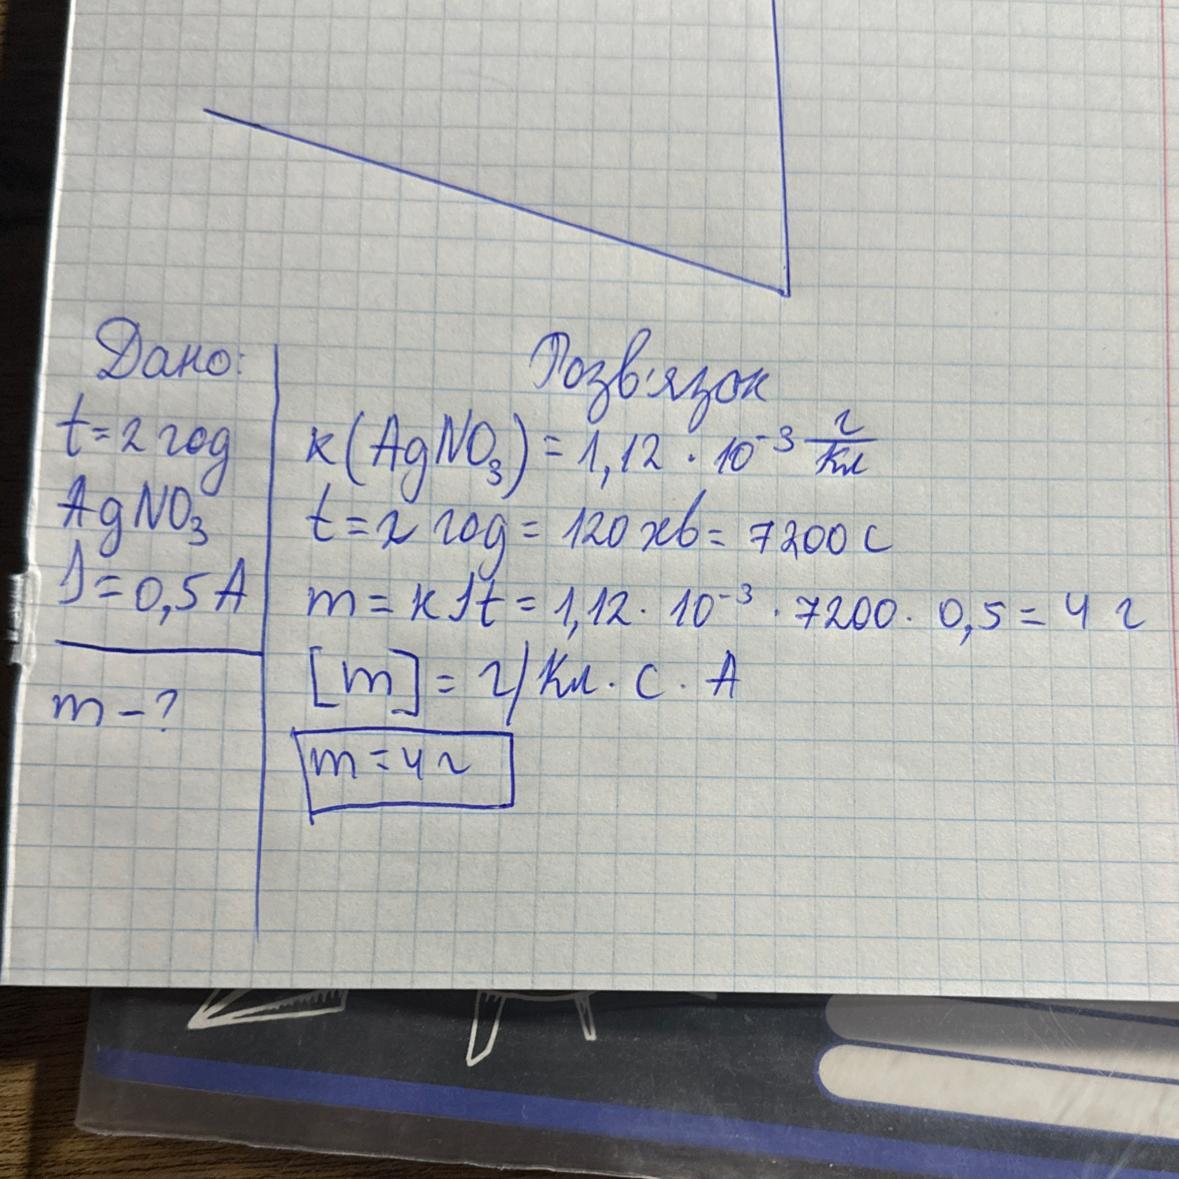 Дано:
t=2 год
AgNO₃
I=0,5 A
m-?
Розв'язок
к(AgNO₃)=1,12·10⁻³ г/Кл
t=2 год=120 хв=7200 с
m=кIt=1,12·10⁻³·7200·0,5=4 г
[m]=г/Кл·с·А
m=4 г